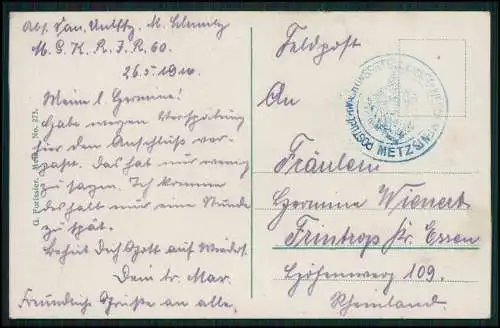 Abs. San. Untffz. M.
M. G. K. R. I. R. 60.
26.5.1916.
Meine l. Hermine!
Habe wegen Verspätung
für den Anschluß ver-
passt. Das hat nur wenig
zu sagen. Ich komme
deshalb nur eine Stunde
zu spät.
Behüt Dich Gott auf Wieders.
Dein tr. Max.
Freundliche Grüße an alle.
Feldpost
An
Fräulein
Hermine Wienert
Frintrop Kr. Essen
Höhenweg 109.
Rheinland.
METZ
No. 273.